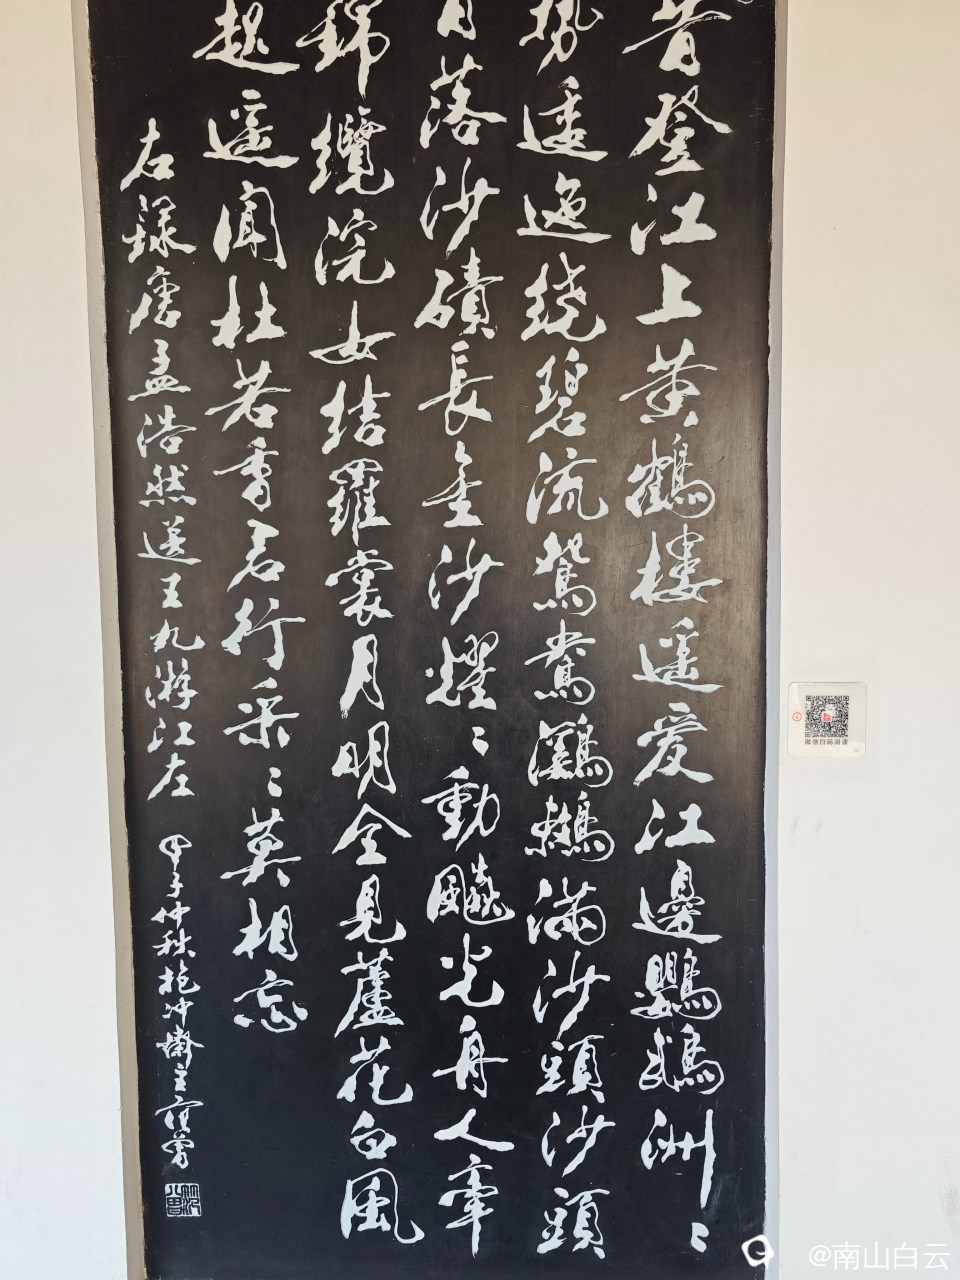 昔登江上黄鶴樓遥爱江邊鸚鵡洲〻
势逶迤绕碧流鴛鴦鸂鶒滿沙頭沙頭
日落沙磧長金沙燿〻動飈光舟人牽
錦纜浣女结羅裳月明全見蘆花白風
起遥闻杜若香君行采〻莫相忘
右録唐孟浩然送王九游江左
甲子仲秋抱冲斋主范曾
微信扫码阅读
@南山白云